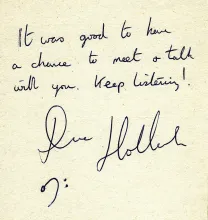 It was good to have
a chance to meet & talk
with you. Keep listening!